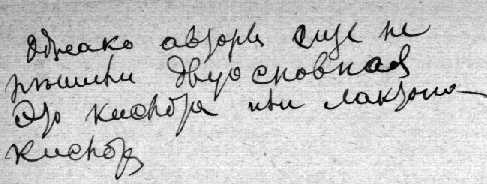 Однако авторы еще не
решили двуосновная
Это кислота или лактоно-
кислота